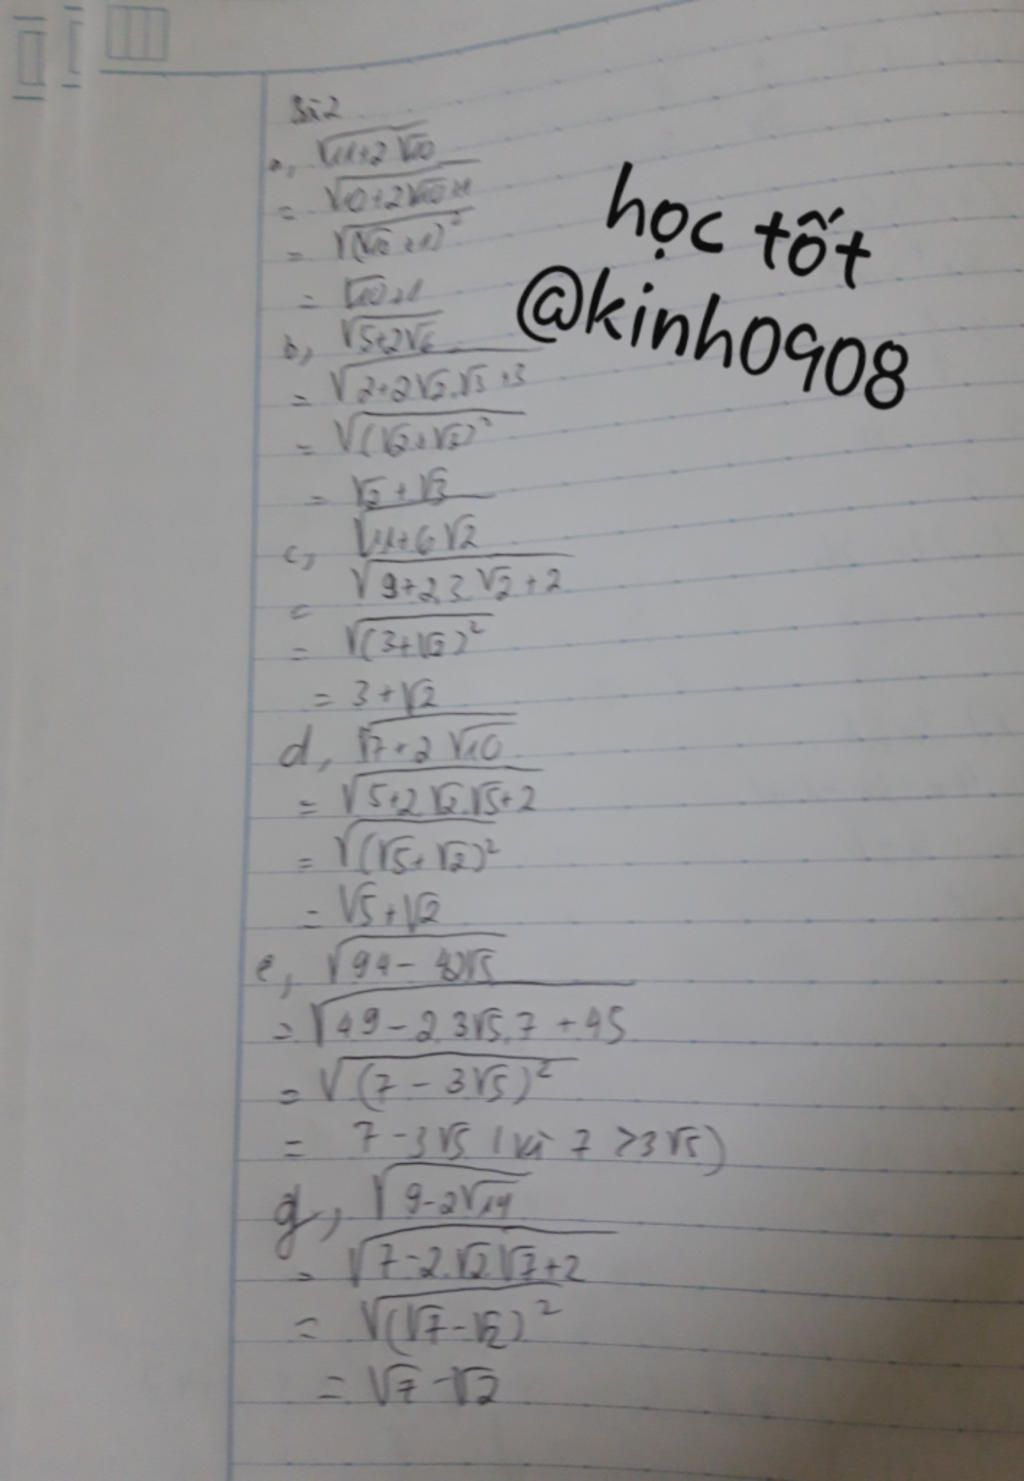 Bài 2
a, √11+2√10
= √10+2√10+1
= √(√10+1)²
= √10+1
b, √5+2√6
= √2+2√2.√3+3
= √(√2+√3)²
= √2+√3
c, √11+6√2
= √9+2.3√2+2
= √(3+√2)²
= 3+√2
d, √7+2√10
= √5+2√2.√5+2
= √(√5+√2)²
= √5+√2
e, √94-42√5
= √49-2.3√5.7+45
= √(7-3√5)²
= 7-3√5 (vì 7>3√5)
g, √9-2√14
= √7-2.√2√7+2
= √(√7-√2)²
= √7-√2
học tốt
@kinh0908